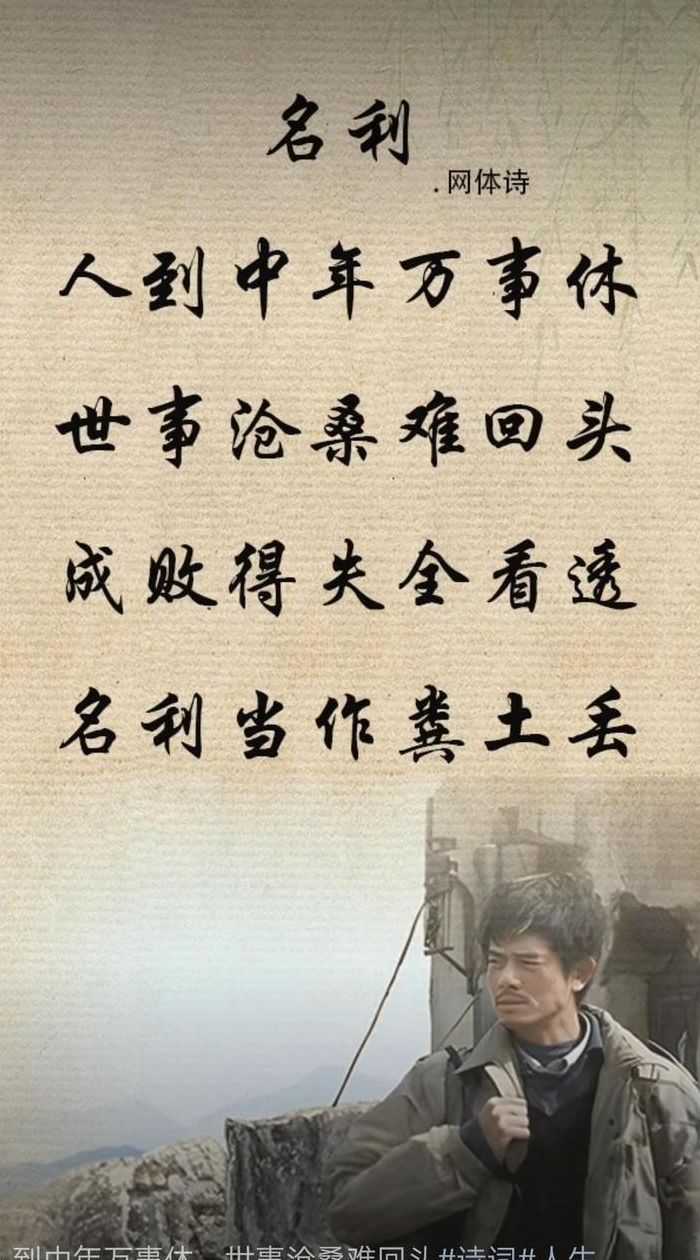 名利
.网体诗
人到中年万事休
世事沧桑难回头
成败得失全看透
名利当作粪土丢
到中年万事休，世事沧桑难回头#诗词#人生